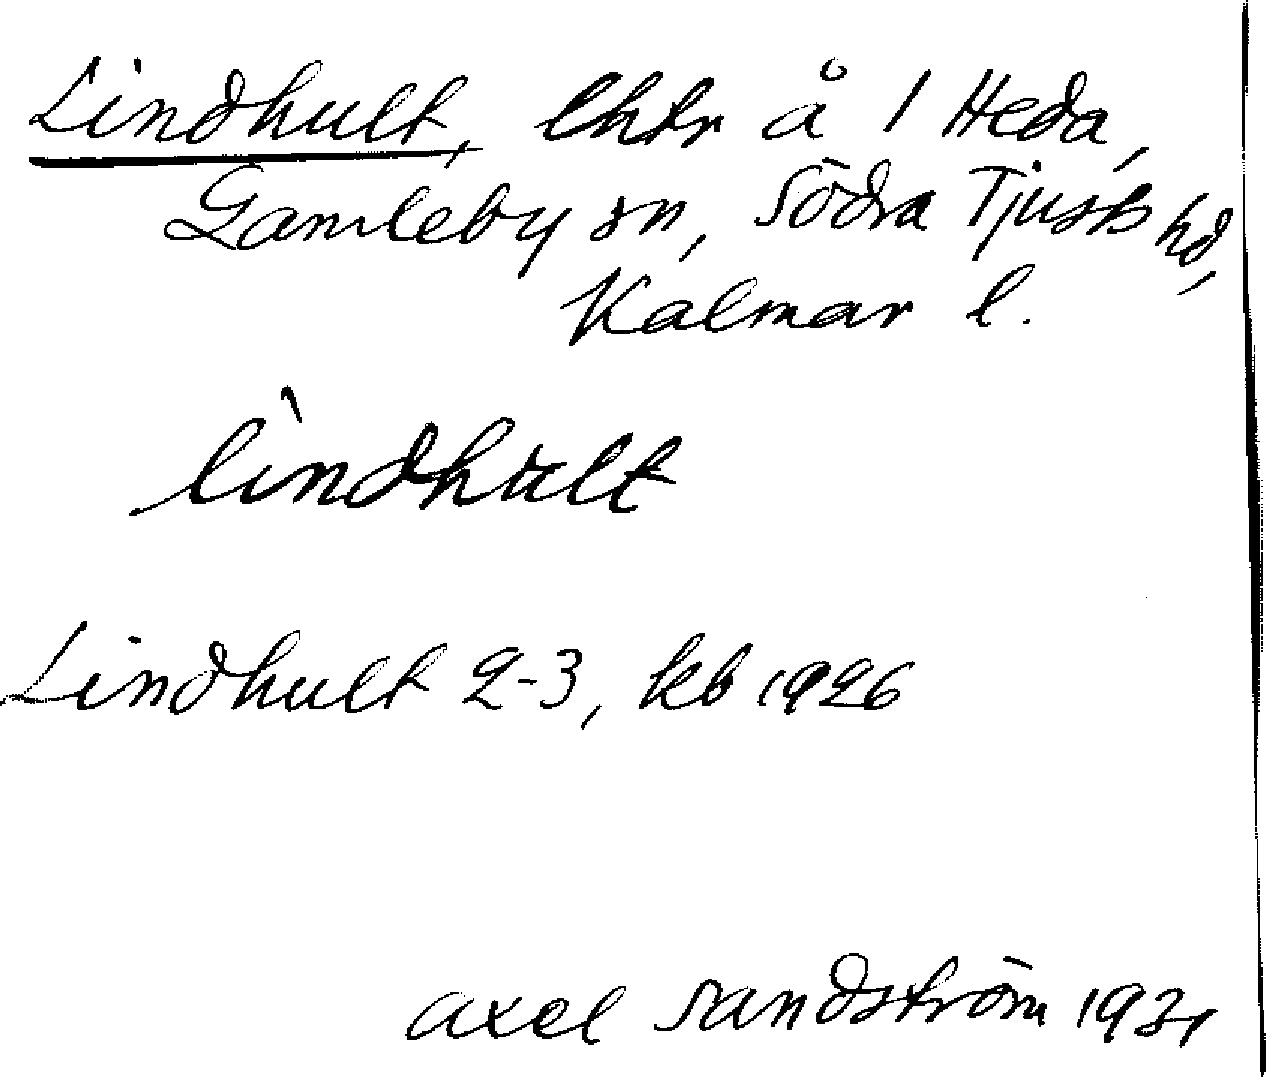 Lindhult, lhtr å 1 Heda,
Gamleby sn, Södra Tjusts hd,
Kalmar l.
lìndhult
Lindhult 2-3, kb 1926
Axel Sandström 1931